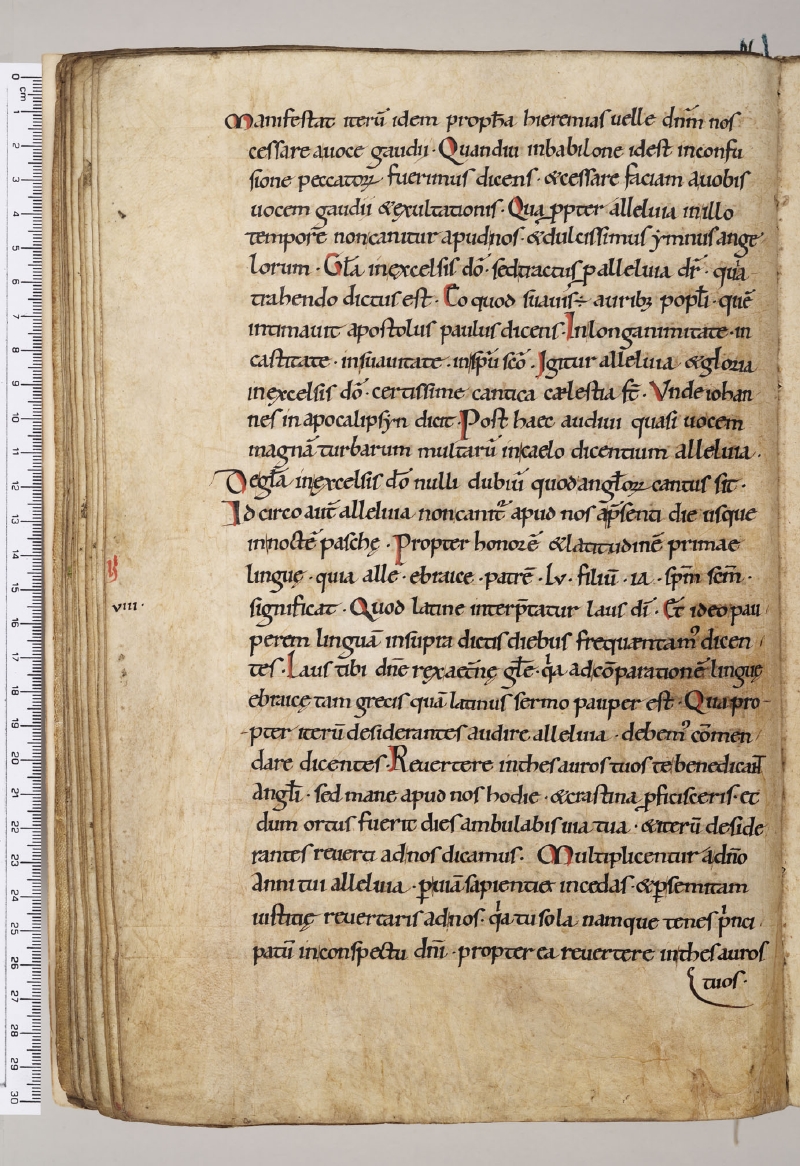 Manifestat iterū idem prophā hieremias uelle dn̄m nos
cessare auoce gaudii · Quandiu inbabilone idest inconfu
sione peccatoꝝ fuerimus dicens · &cessare faciam auobis
uocem gaudii &exultationis · Qua ꝓpter alleluia inillo
tempore noncanitur apud nos · &dulcissimus ymnus ange
lorum · Glā inexcelsis dō · sed tractus ꝑ alleluia dr̄ · quia
trahendo dictus est · Eo quod suauis ÷ aurib; popli · quē
intimauit apostolus paulus dicens · In longanimitate · in
castitate · insuauitate · inspū scō · Igitur alleluia &gloria
inexcelsis dō · certissime cantica cælestia st̄ · Vnde iohan
nes in apocalipsyn dicit · Post haec audiui quasi uocem
magnā turbarum multarū incaelo dicentium alleluia ·
De glā inexcelsis dō nulli dubiū quod angloꝝ cantus sit ·
Id circo aut̄ alleluia noncantr̄ apud nos a p̄senti die usque
in noctē paschę · Propter honorē &latitudinē primae
linguę · quia alle · ebraice · patrē · lv · filiū · ia · sp̄m sc̄m ·
viii ·
significat · Quod latine interp̄tatur laus dī · Et ideo pau
perem linguā insupra dictis diebus frequentamꝰ dicen
tes · Laus tibi dn̄e rex aetn̄ę glę · qͥa adcōparationē linguę
ebraicę tam grecis quā latinus sermo pauper est · Qua pro-
-pter iterū desiderantes audire alleluia · debemꝰ cōmen
dare dicentes · Reuertere inthesauros tuos te benedicant
Angłi · sed mane apud nos hodie · &crastina ꝓficisceris · et
dum ortus fuerit dies ambulabis uia tua · &iterū deside
rantes reuerti ad nos dicamus · Multiplicentur a dn̄o
Anni tui alleluia · ꝑ uiā sapientię incedas · &ꝑ semitam
iustitię reuertaris ad nos · qͥa tu sola namque tenes pͥnci
patū inconspectu dn̄i · propter ea reuertere inthesauros
tuos ·